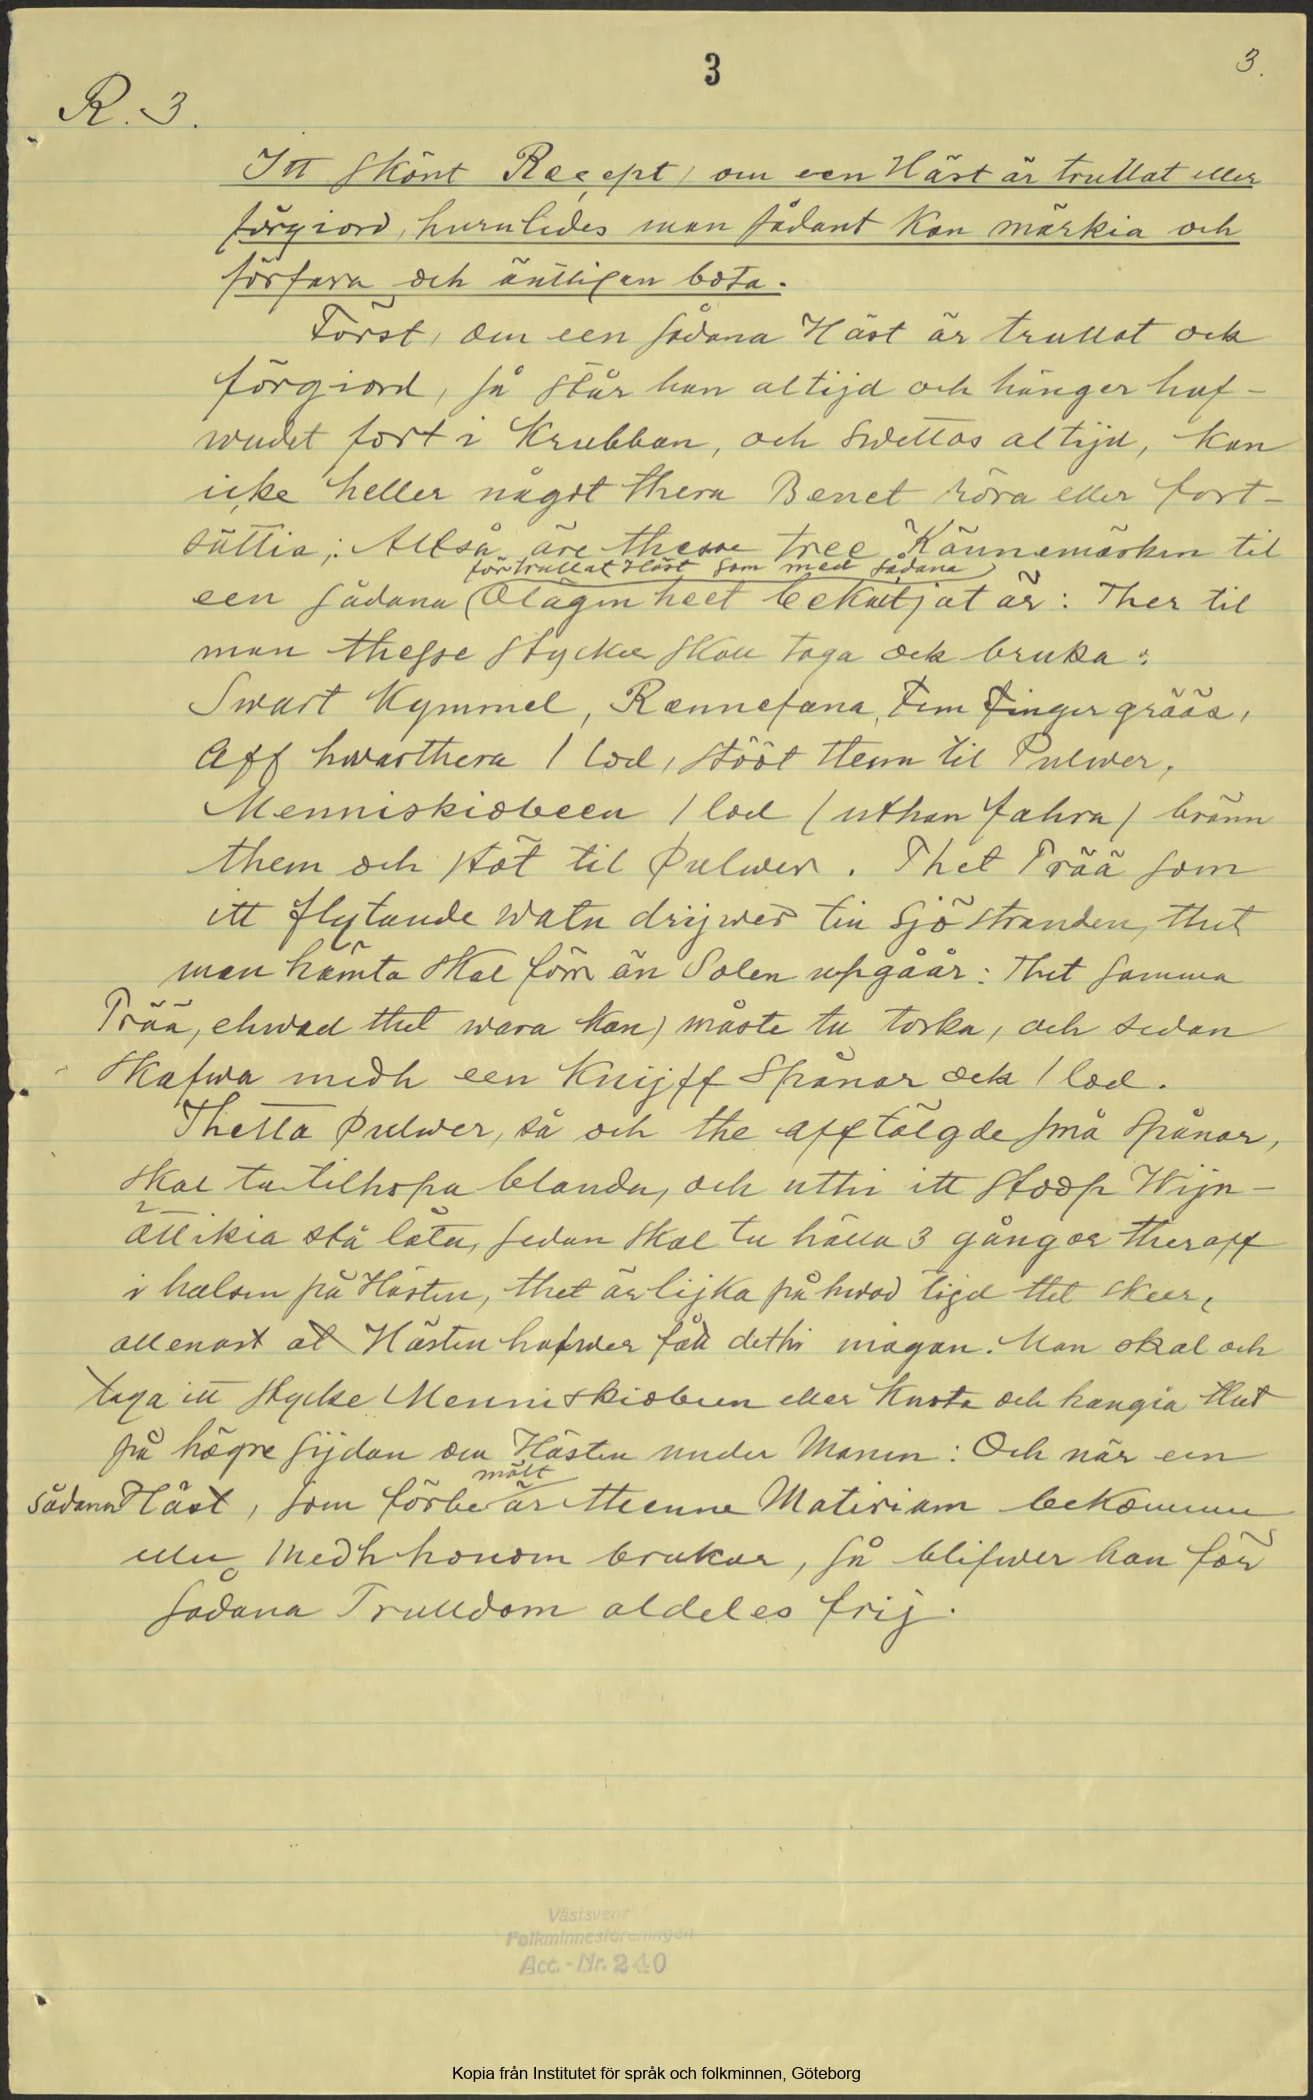 3
3.
R. 3.
Itt skönt Recept, om een Häst är trullat eller
förgiord, huruledes man sådant kan märkia och
förfara och äntligen bota.
Först, om een sådana Häst är trullat och
förgiord, så står han altijd och hänger huf-
wudet fort i Krubban, och swettas altijd, kan
icke heller någst thera Benet röra eller fort-
sättia; Altså äre thesse tree Kännemärken til
förtrullat Häst som med sådana
een sådana Olägenheet bekutjat är: Ther til
man thesse stycker skall taga och bruka:
Swart Kymmel, Rennefana, Fem Finger grääs,
Aff hwarthera 1 lod, stööt them til Pulwer,
Menniskiobeen 1 lod (uthan fahra) bränn
them och stöt til Pulwer. Thet Trää som
itt flytande watn drijwer tin sjöstranden, thet
man hämta skal förr än Solen upgåår: Thet samma
Trää, ehwad thet wara kan) måste tu torka, och sedan
skafwa medh een Knijff Spånar och 1 lod.
Thetta Pulwer, så och the afftälgde små Spånar,
skal tu tilhopa blanda, och uthi itt stoop Wijn-
ättikia stå låta, sedan skal tu hälla 3 gångor theraff
i halsen på Hästen, thet är lijka på hwad tijd thet skeer,
allenast at Hästen hafwer fått dethi magan. Man skal och
taga itt stycke Menniskiobeen eller Knota och hangia thet
på högre sijdan om Hästen under Manen: Och når een
mält
sådana Häst, som förbe är thenne Materiam bekommer
eller medh honom brukar, så blifwer han för
sådana Trulldom aldeles frij.
Västsvenska
Folkminnesföreningen
Acc.-Nr. 240
Kopia från Institutet för språk och folkminnen, Göteborg